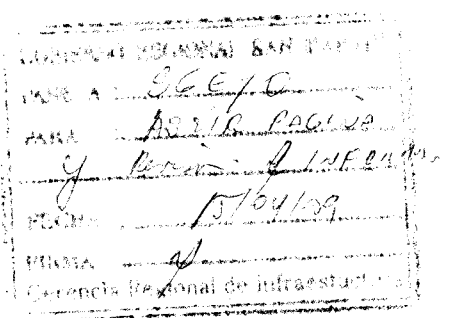 GOBIERNO REGIONAL SAN MARTIN
PASE A : SGE y O
PARA : ABRIR PAGINA
y
FECHA 15/04/09
FIRMA
Gerencia Regional de Infraestructura